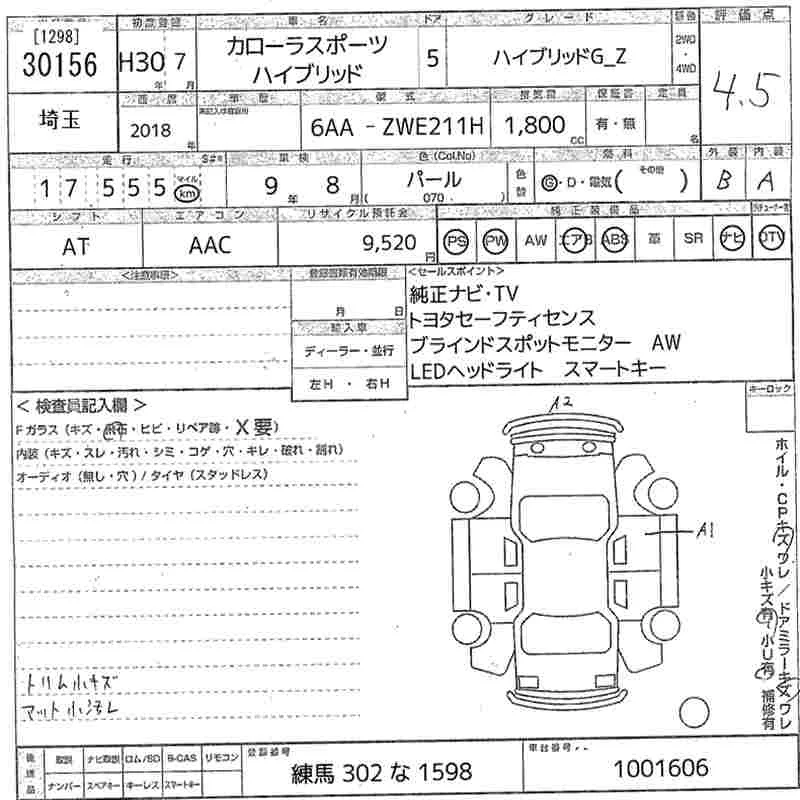 [1298]
30156
初度登録
H30 7
年 月
車名
カローラスポーツ
ハイブリッド
ドア
5
グレード
ハイブリッドG_Z
2WD
・
4WD
評価点
4.5
埼玉
2018
年
型式
6AA －ZWE211H
排気量
1,800
CC
保証書
有・無
定員
名
走行
17555
マイル
km
車検
9 年 8 月
色(Col.No)
パール
( 070 )
色替
燃料
G・D・電気( その他 )
外装
B
内装
A
シフト
AT
エアコン
AAC
リサイクル預託金
9,520 円
純正装備品
PS PW AW エアB ABS 革 SR ナビ TV
<注意事項>
登録書類有効期限
月 日
輸入車
ディーラー・並行
左H ・ 右H
<セールスポイント>
純正ナビ・TV
トヨタセーフティセンス
ブラインドスポットモニター AW
LEDヘッドライト スマートキー
キーロック
＜ 検査員記入欄 ＞
Fガラス(キズ・飛石・ヒビ・リペア跡・X要)
内装(キズ・スレ・汚れ・シミ・コゲ・穴・キレ・破れ・割れ)
オーディオ(無し・穴)/タイヤ(スタッドレス)
トリム小キズ
マット小汚レ
A2
A1
ホイル・CPキズワレ/ドアミラーキズワレ
小キズ有・小U有 補修有
後送品
取説 ナビ取説 ロム/SD B-CAS リモコン
ナンバー スペアキー キーレス スマートキー
登録番号
練馬 302 な 1598
車台番号
1001606